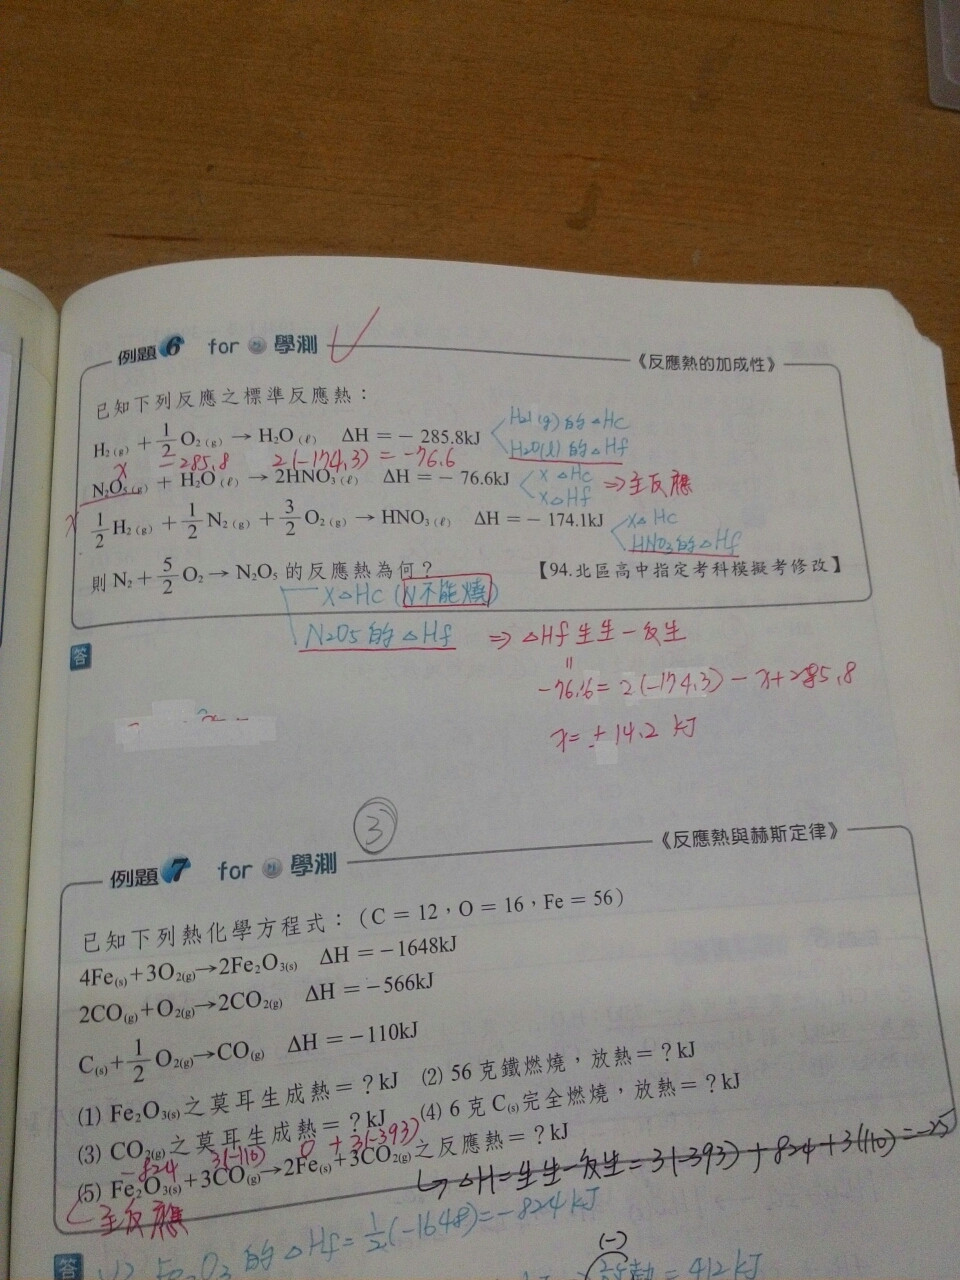 例題6 for 學測
《反應熱的加成性》
已知下列反應之標準反應熱：
H₂(g) + 1/2 O₂(g) → H₂O(ℓ) ΔH = − 285.8kJ
H2(g)的△Hc
H2O(l)的△Hf
x −285.8 2(−174.3) = −76.6
N₂O₅(g) + H₂O(ℓ) → 2HNO₃(ℓ) ΔH = − 76.6kJ
x △Hc
x △Hf
⇒主反應
1/2 H₂(g) + 1/2 N₂(g) + 3/2 O₂(g) → HNO₃(ℓ) ΔH = − 174.1kJ
x △Hc
HNO3的△Hf
則 N₂ + 5/2 O₂ → N₂O₅ 的反應熱為何？
【94.北區高中指定考科模擬考修改】
x△Hc (N不能燒)
N2O5的△Hf ⇒ △Hf生生−反生
答
=
−76.6 = 2(−174.3) − x + 285.8
x = ± 14.2 kJ
③
例題7 for 學測
《反應熱與赫斯定律》
已知下列熱化學方程式：（C = 12，O = 16，Fe = 56）
4Fe(s)+3O₂(g)→2Fe₂O₃(s) ΔH = −1648kJ
2CO(g)+O₂(g)→2CO₂(g) ΔH = −566kJ
C(s)+ 1/2 O₂(g)→CO(g) ΔH = −110kJ
(1) Fe₂O₃(s)之莫耳生成熱 = ？kJ (2) 56 克鐵燃燒，放熱 = ？kJ
(3) CO₂(g)之莫耳生成熱 = ？kJ (4) 6 克 C(s)完全燃燒，放熱 = ？kJ
−824 3(−110) 0 + 3(−393)
(5) Fe₂O₃(s)+3CO(g)→2Fe(s)+3CO₂(g)之反應熱 = ？kJ
主反應
↳ △H = 生生−反生 = 3(−393) + 824 + 3(110) = −25
答
(1) Fe2O3 的△Hf = 1/2(−1648) = −824 kJ
(−)
放熱 = 412 kJ